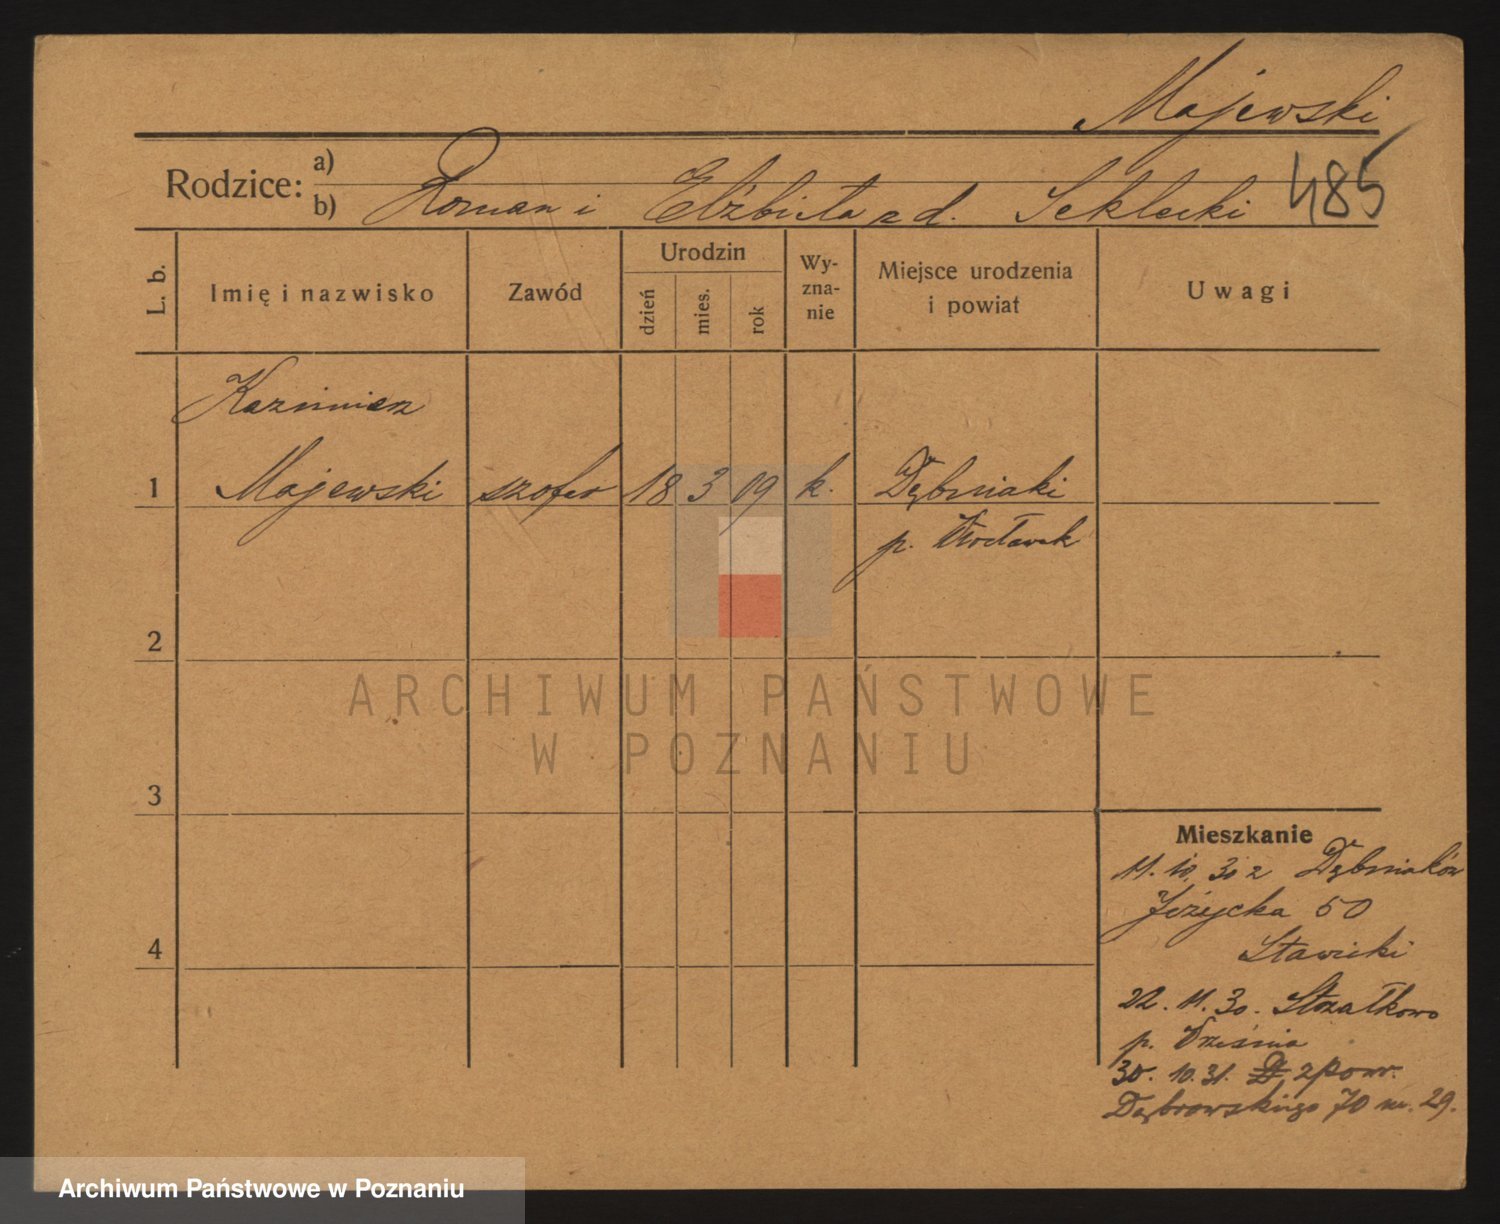 Majewski
Rodzice: a)
b) Roman i Elżbieta z d. Seklecki 485
L. b. Imię i nazwisko Zawód Urodzin dzień mies. rok Wy-zna-nie Miejsce urodzenia i powiat Uwagi
Kazimierz
1 Majewski szofer 18 3 09 k. Dębniaki
p. Włocławek
2
ARCHIWUM PAŃSTWOWE
W POZNANIU
3
Mieszkanie
11. 10. 30 z Dębniaków
Jeżycka 50
Stawicki
4
22. 11. 30. Strzałkowo
p. Września
30. 10. 31. z powr.
Dąbrowskiego 70 m. 29.
Archiwum Państwowe w Poznaniu